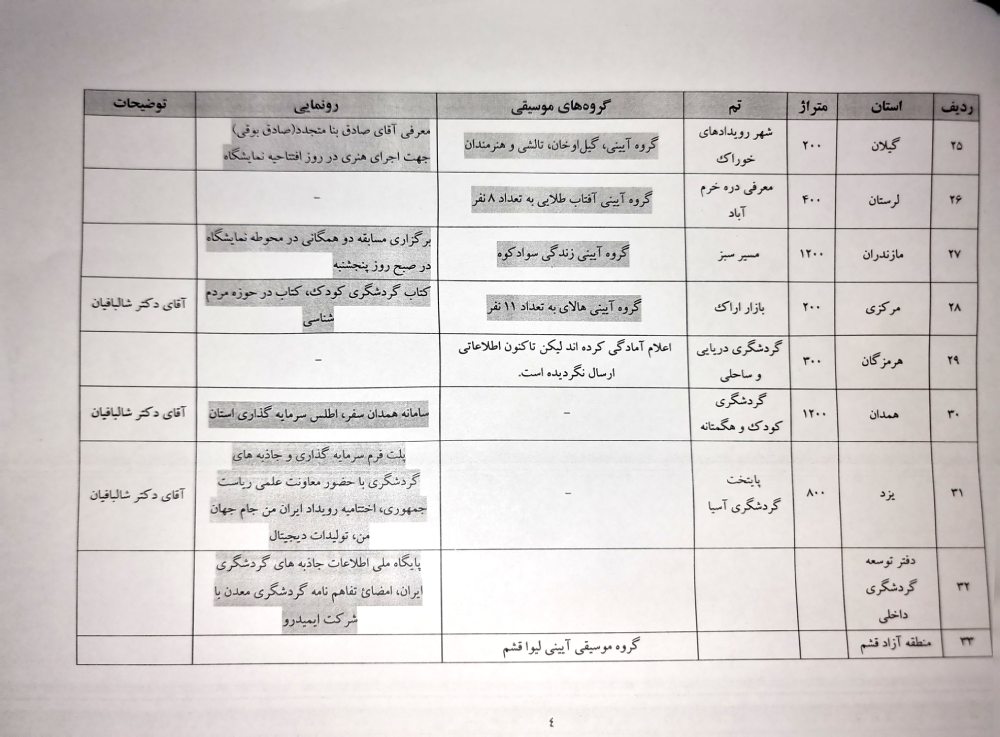 ردیف استان متراژ تم گروه‌های موسیقی رونمایی توضیحات
۲۵ گیلان ۲۰۰ شهر رویدادهای خوراک گروه آیینی، گیل‌اوخان، تالشی و هنرمندان معرفی آقای صادق بنا متجدد(صادق بوقی) جهت اجرای هنری در روز افتتاحیه نمایشگاه
۲۶ لرستان ۴۰۰ معرفی دره خرم آباد گروه آیینی آفتاب طلایی به تعداد ۸ نفر –
۲۷ مازندران ۱۲۰۰ مسیر سبز گروه آیینی زندگی سوادکوه برگزاری مسابقه دو همگانی در محوطه نمایشگاه در صبح روز پنجشنبه
۲۸ مرکزی ۲۰۰ بازار اراک گروه آیینی هالای به تعداد ۱۱ نفر کتاب گردشگری کودک، کتاب در حوزه مردم شناسی آقای دکتر شالبافیان
۲۹ هرمزگان ۳۰۰ گردشگری دریایی و ساحلی اعلام آمادگی کرده اند لیکن تاکنون اطلاعاتی ارسال نگردیده است. –
۳۰ همدان ۱۲۰۰ گردشگری کودک و هگمتانه – سامانه همدان سفر، اطلس سرمایه گذاری استان آقای دکتر شالبافیان
۳۱ یزد ۸۰۰ پایتخت گردشگری آسیا – پلت فرم سرمایه گذاری و جاذبه های گردشگری با حضور معاونت علمی ریاست جمهوری، اختتامیه رویداد ایران من جام جهان من، تولیدات دیجیتال آقای دکتر شالبافیان
۳۲ دفتر توسعه گردشگری داخلی پایگاه ملی اطلاعات جاذبه های گردشگری ایران، امضائ تفاهم نامه گردشگری معدن با شرکت ایمیدرو
۳۳ منطقه آزاد قشم گروه موسیقی آیینی لیوا قشم
٤